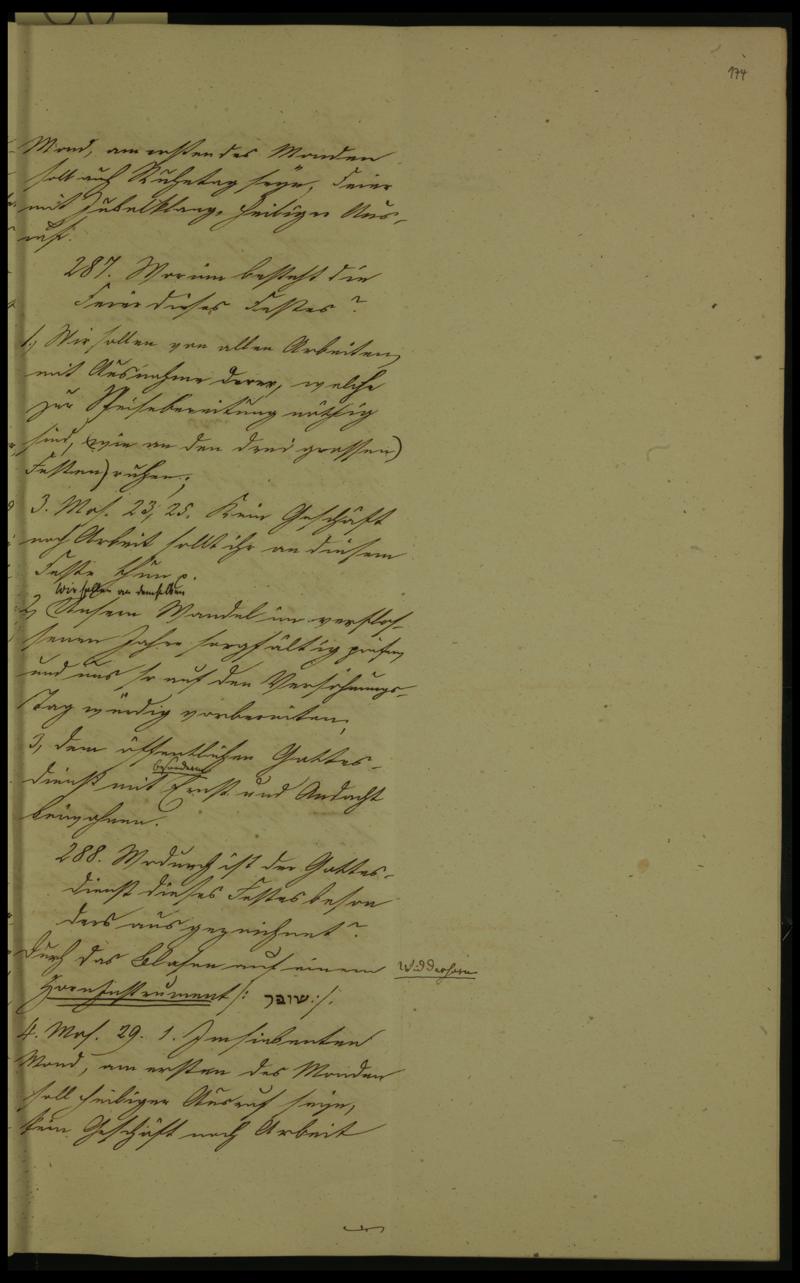 174
Mond, am ersten des Monden
soll euch Ruhetag seyn, Feier
mit Jubelklang, heiliger Aus-
ruf.
287. Worinn besteht die
Feier dieses Festes?
1, Wir sollen von allen Arbeiten,
mit Ausnahme derer, welche
zur Speisebereitung nöthig
sind, (wie an den drei grossen)
Festen) ruhen;
3. Mos. 23, 25. Kein Geschäft
noch Arbeit sollt ihr an diesem
Feste thun
Wir sollen an demselben
2, Unsern Wandel im verflos-
senen Jahre sorgfältig prüfen,
und uns so auf den Versöhnungs-
Tag würdig vorbereiten;
3, dem öffentlichen Gottes-
besonderm
dienst mit Ernst und Andacht
beiwohnen.
288. Wodurch ist der Gottes-
dienst dieses Festes beson
ders ausgezeichnet?
Durch das Blasen auf einem Widderhorn
Horn Instrument /: שופר :/.
4. Mos. 29. 1. Im siebenten
Mond, am ersten des Monden
soll heiliger Ausruf seyn,
kein Geschäft noch Arbeit